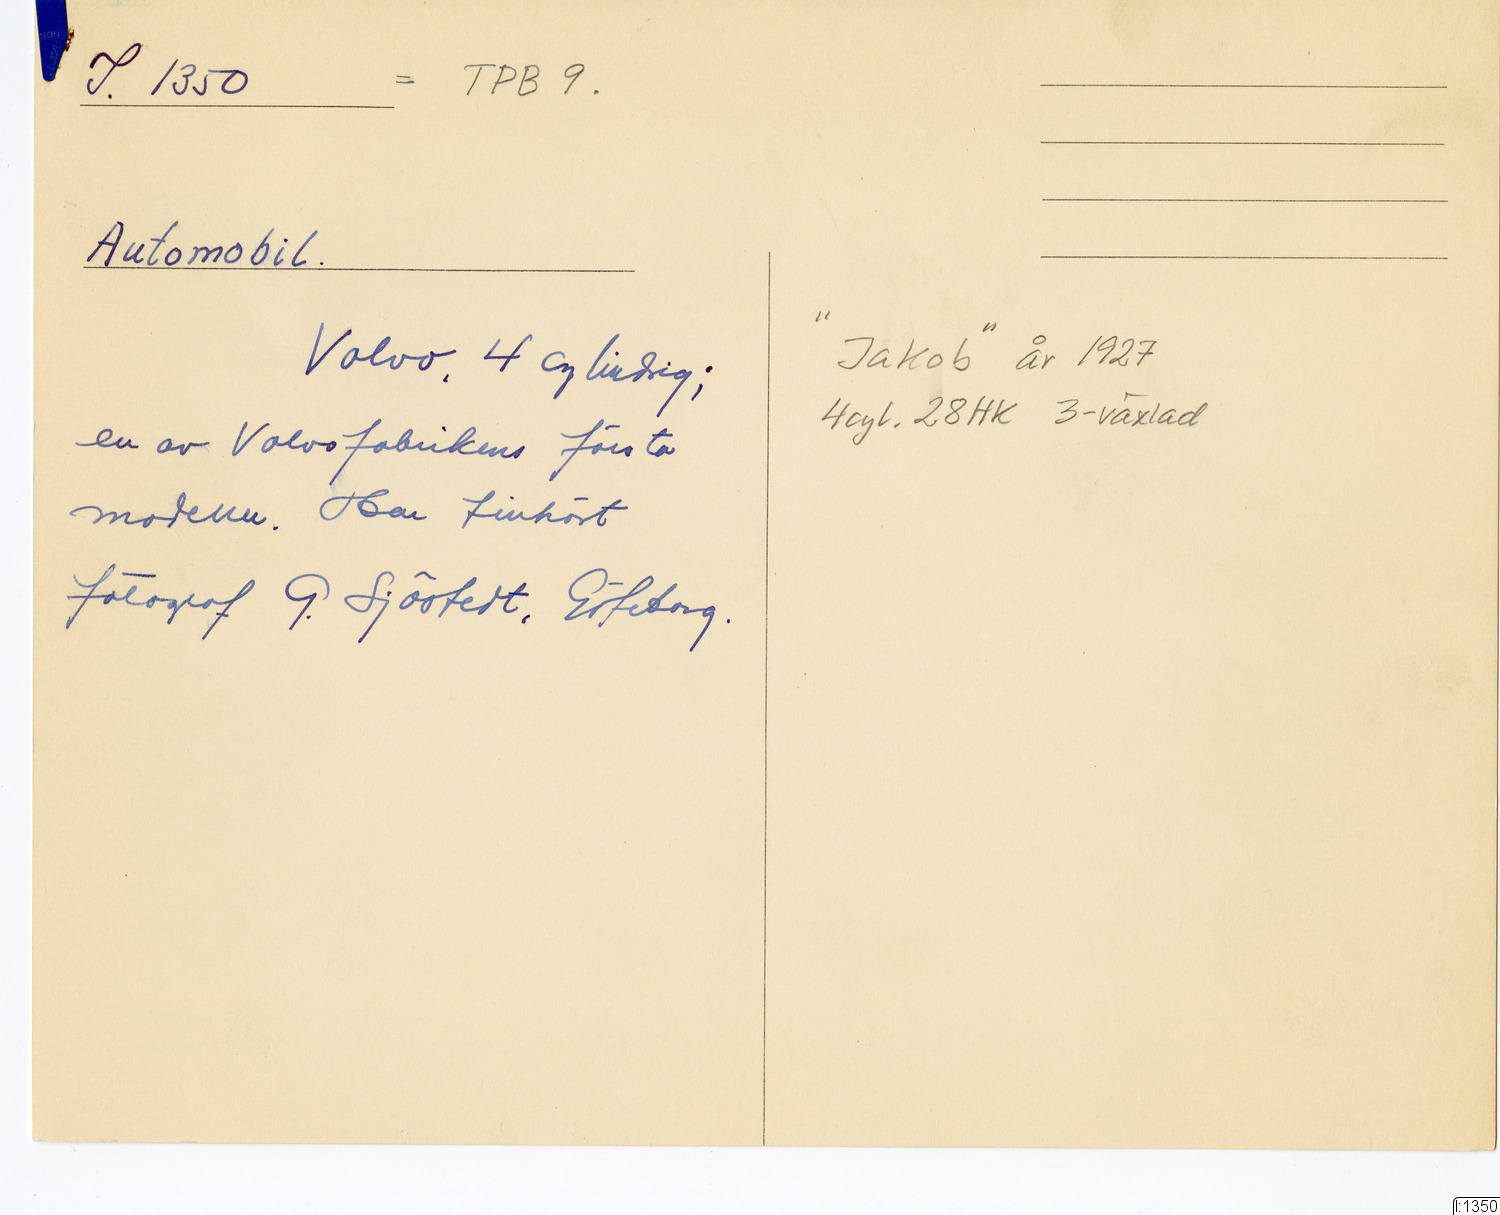 I. 1350 = TPB 9.
Automobil.
Volvo, 4 cylindrig;
en av Volvofabrikens första
modeller. Har tillhört
fotograf G. Sjöstedt, Göteborg.
"Jakob" år 1927
4cyl. 28HK 3-växlad
I:1350